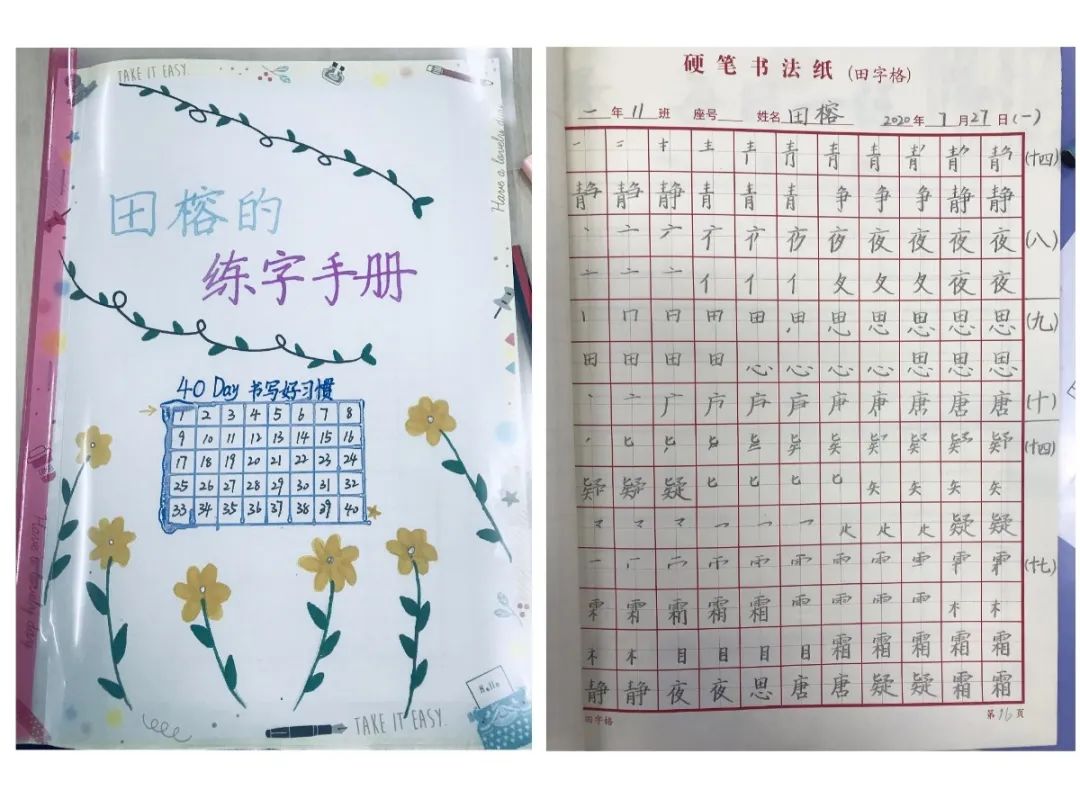 TAKE IT EASY.
Have a lovely day
田榕的
练字手册
40 Day 书写好习惯
1 2 3 4 5 6 7 8
9 10 11 12 13 14 15 16
17 18 19 20 21 22 23 24
25 26 27 28 29 30 31 32
33 34 35 36 37 38 39 40
Have a lovely day
Hello
TAKE IT EASY.
硬笔书法纸(田字格)
一年11班 座号 姓名田榕 2020年7月27日(一)
一 二 キ 龶 青 青 青 静 静 (十四)
静 静 静 青 青 青 争 争 争 静 静
丶 亠 广 疒 夜 夜 夜 夜 夜 (八)
亠 亠 亠 亻 亻 亻 夂 夂 夂 夜 夜
丨 冂 日 田 田 思 思 思 思 思 (九)
田 田 田 田 心 心 心 心 思 思 思
丶 亠 广 户 唐 唐 唐 (十)
匕 疑 疑 (十四)
疑 疑 疑 匕 匕 匕 匕 矢 矢 矢 矢
龴 龴 龴 疑 疑
一 雨 雨 雨 雨 (十七)
霜 霜 霜 霜 雨 雨 雨 雨 木 木
木 木 目 目 目 目 霜 霜 霜 霜 霜
静 静 夜 夜 思 唐 唐 疑 疑 霜 霜
田字格
第16页